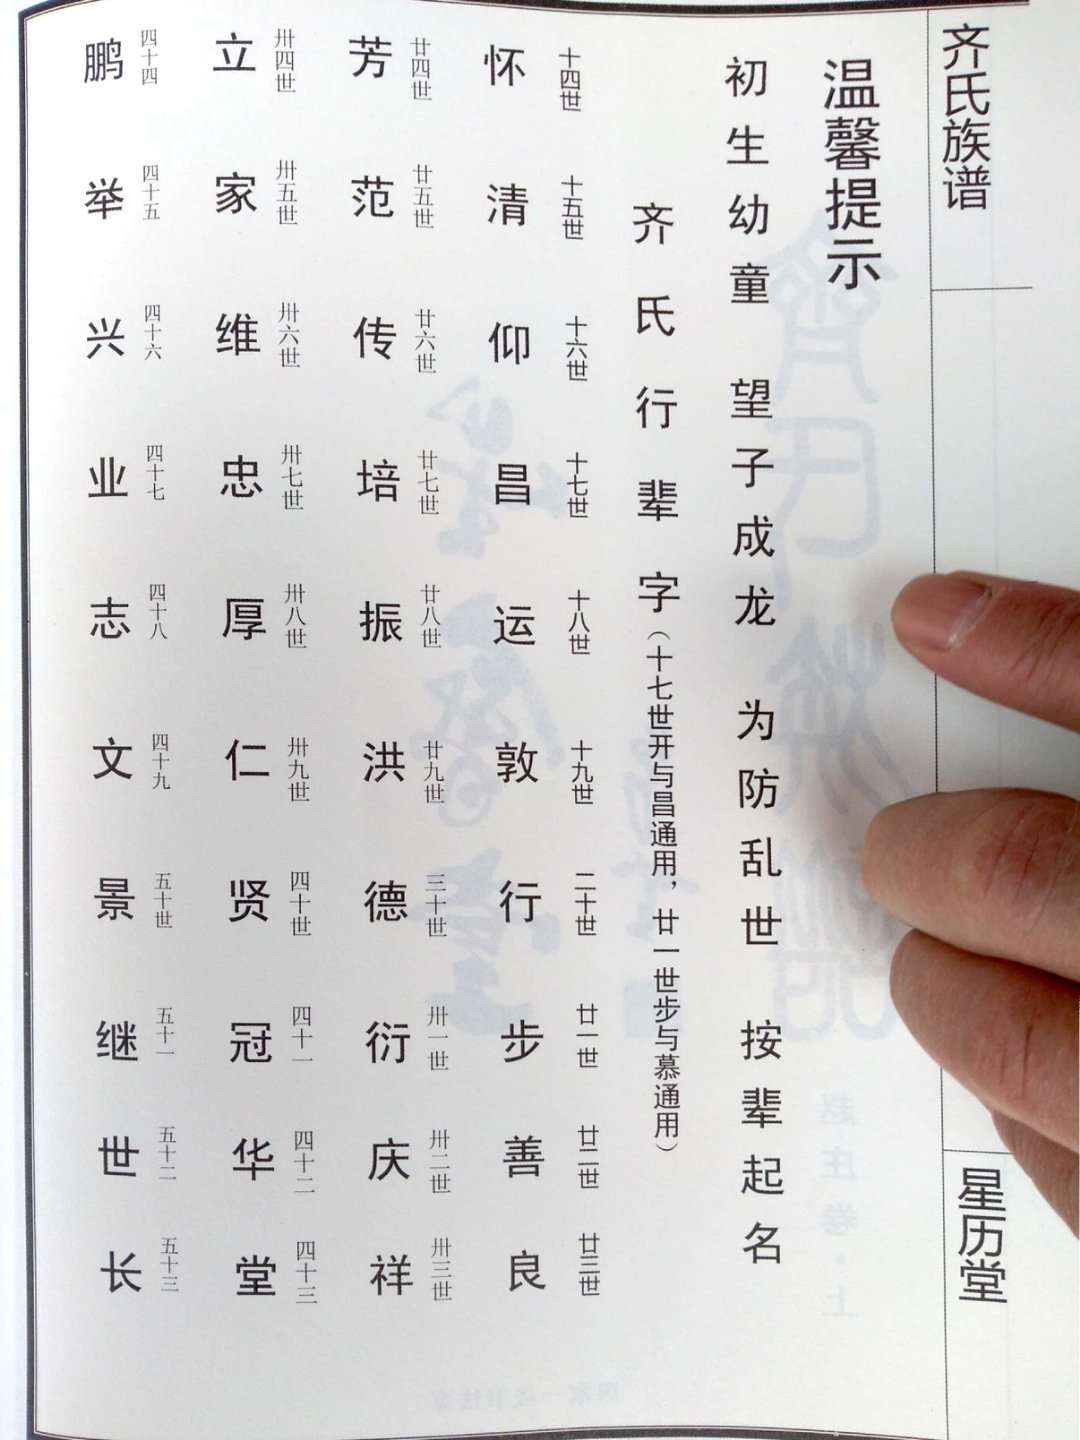 齐氏族谱
星历堂
温馨提示
初生幼童 望子成龙 为防乱世 按辈起名
齐氏行辈字（十七世开与昌通用，廿一世步与慕通用）
十四世 十五世 十六世 十七世 十八世 十九世 二十世 廿一世 廿二世 廿三世
怀 清 仰 昌 运 敦 行 步 善 良
廿四世 廿五世 廿六世 廿七世 廿八世 廿九世 三十世 卅一世 卅二世 卅三世
芳 范 传 培 振 洪 德 衍 庆 祥
卅四世 卅五世 卅六世 卅七世 卅八世 卅九世 四十世 四十一 四十二 四十三
立 家 维 忠 厚 仁 贤 冠 华 堂
四十四 四十五 四十六 四十七 四十八 四十九 五十世 五十一 五十二 五十三
鹏 举 兴 业 志 文 景 继 世 长